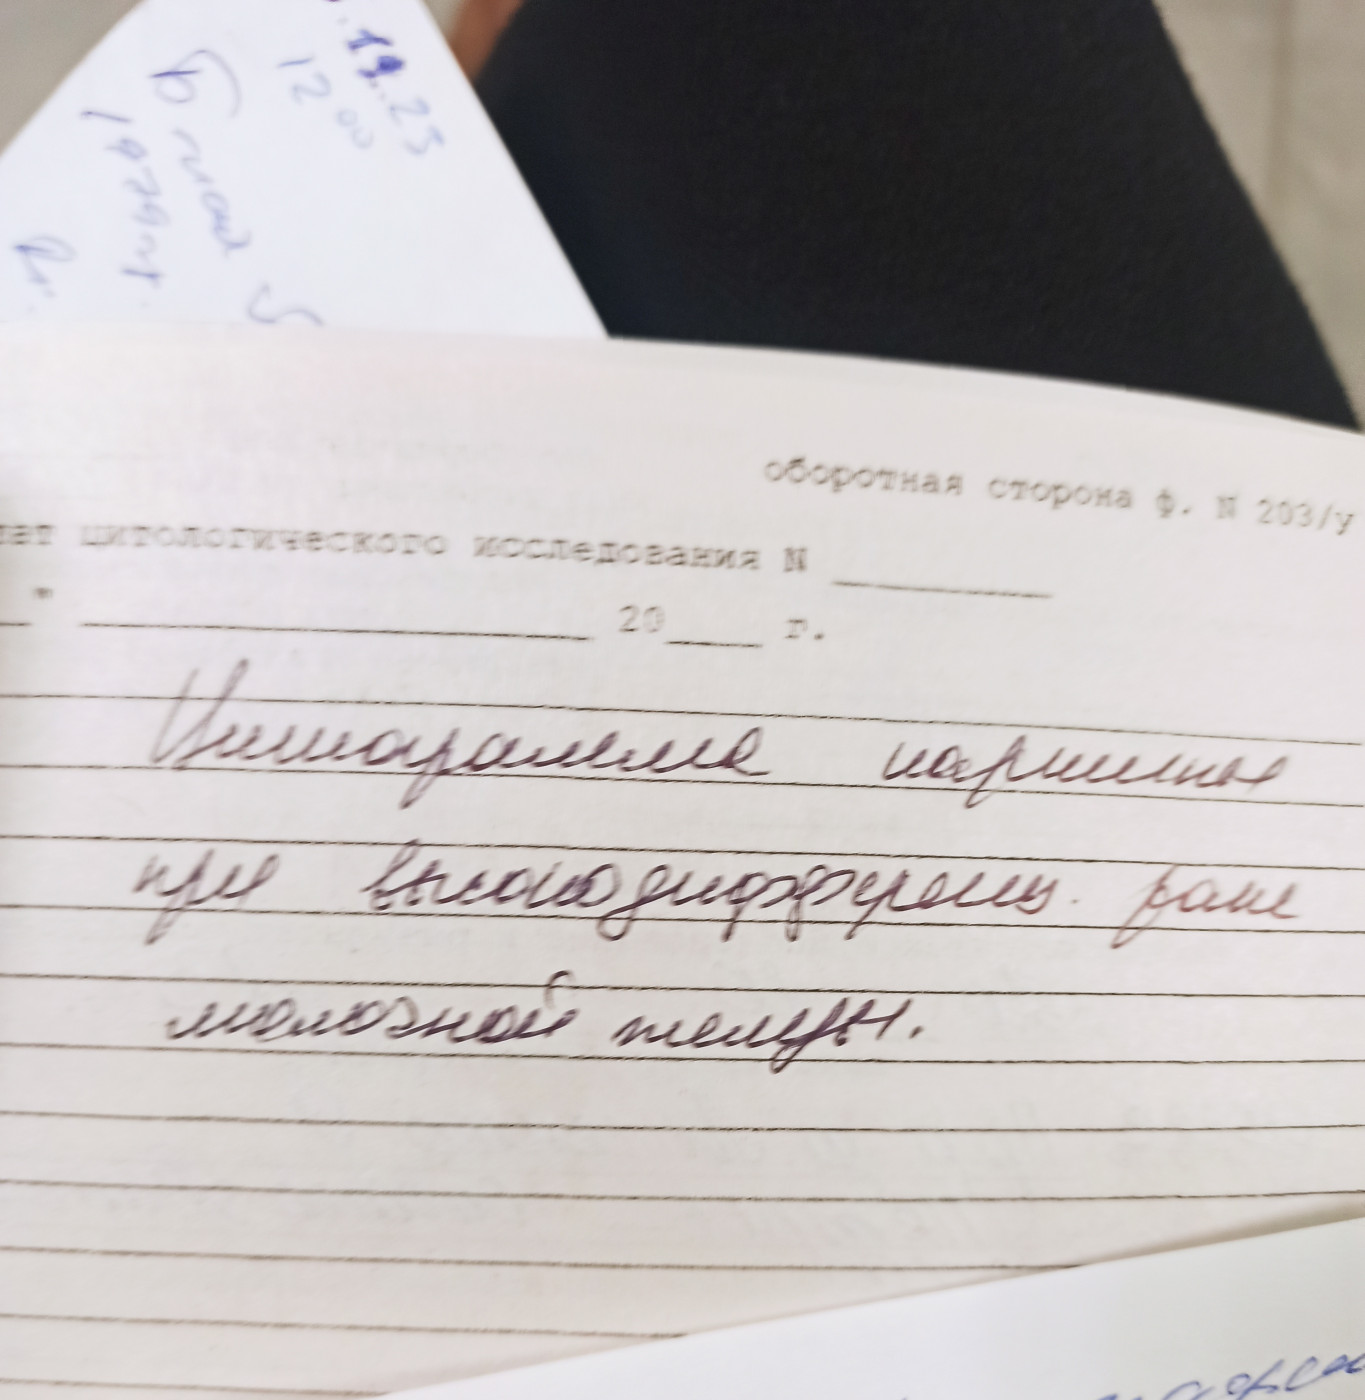 .19.23
12 00
оборотная сторона ф. N 203/у
тат цитологического исследования N
" 20 г.
Цитограмма картины
при высокодифференц. раке
молочной железы.